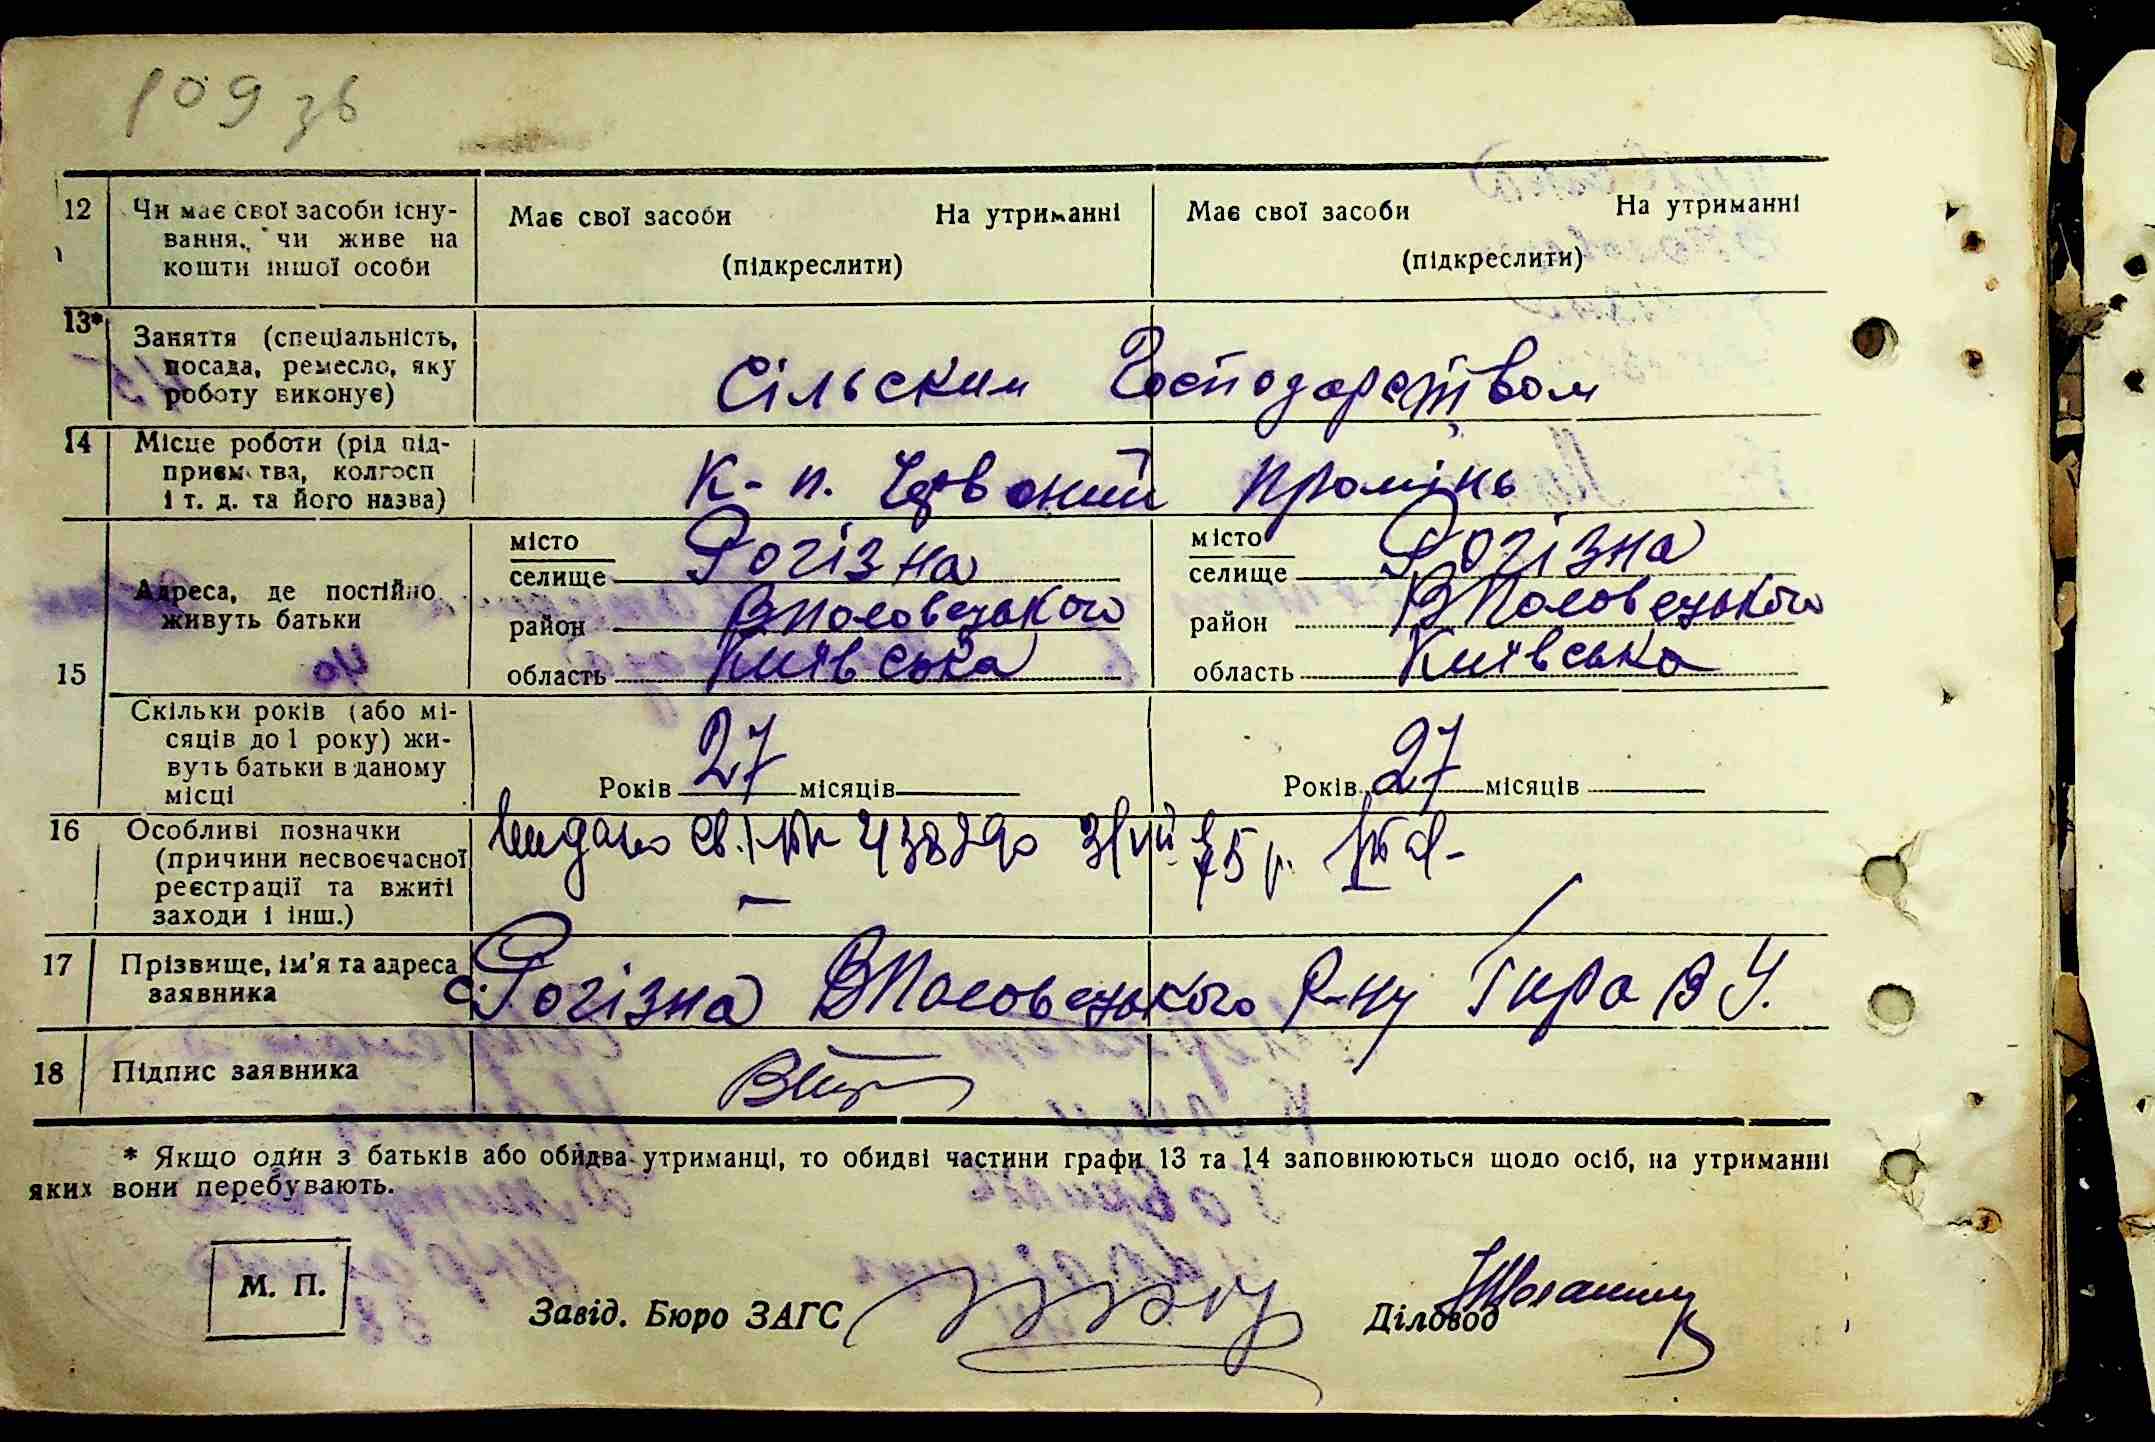 109 зв
12 Чи має свої засоби існу-
вання, чи живе на
кошти іншої особи
Має свої засоби На утриманні
(підкреслити)
Має свої засоби На утриманні
(підкреслити)
13* Заняття (спеціальність,
посада, ремесло, яку
роботу виконує)
Сільским Господарством
14 Місце роботи (рід під-
приємства, колгосп
і т. д. та його назва)
К-п. Червоний промінь
15 Адреса, де постійно
живуть батьки
місто
селище Рогізна
район ВПоловецького
область Київська
місто
селище Рогізна
район ВПоловецького
область Київська
Скільки років (або мі-
сяців до 1 року) жи-
вуть батьки в даному
місці
Років 27 місяців
Років 27 місяців
16 Особливі позначки
(причини несвоєчасної
реєстрації та вжиті
заходи і інш.)
Видано св. 75 р.
17 Прізвище, ім'я та адреса
заявника
с. Рогізна ВПоловецького Р-ну Гира В У.
18 Підпис заявника
* Якщо один з батьків або обидва утриманці, то обидві частини графи 13 та 14 заповнюються щодо осіб, на утриманні
яких вони перебувають.
М. П.
Завід. Бюро ЗАГС
Діловод